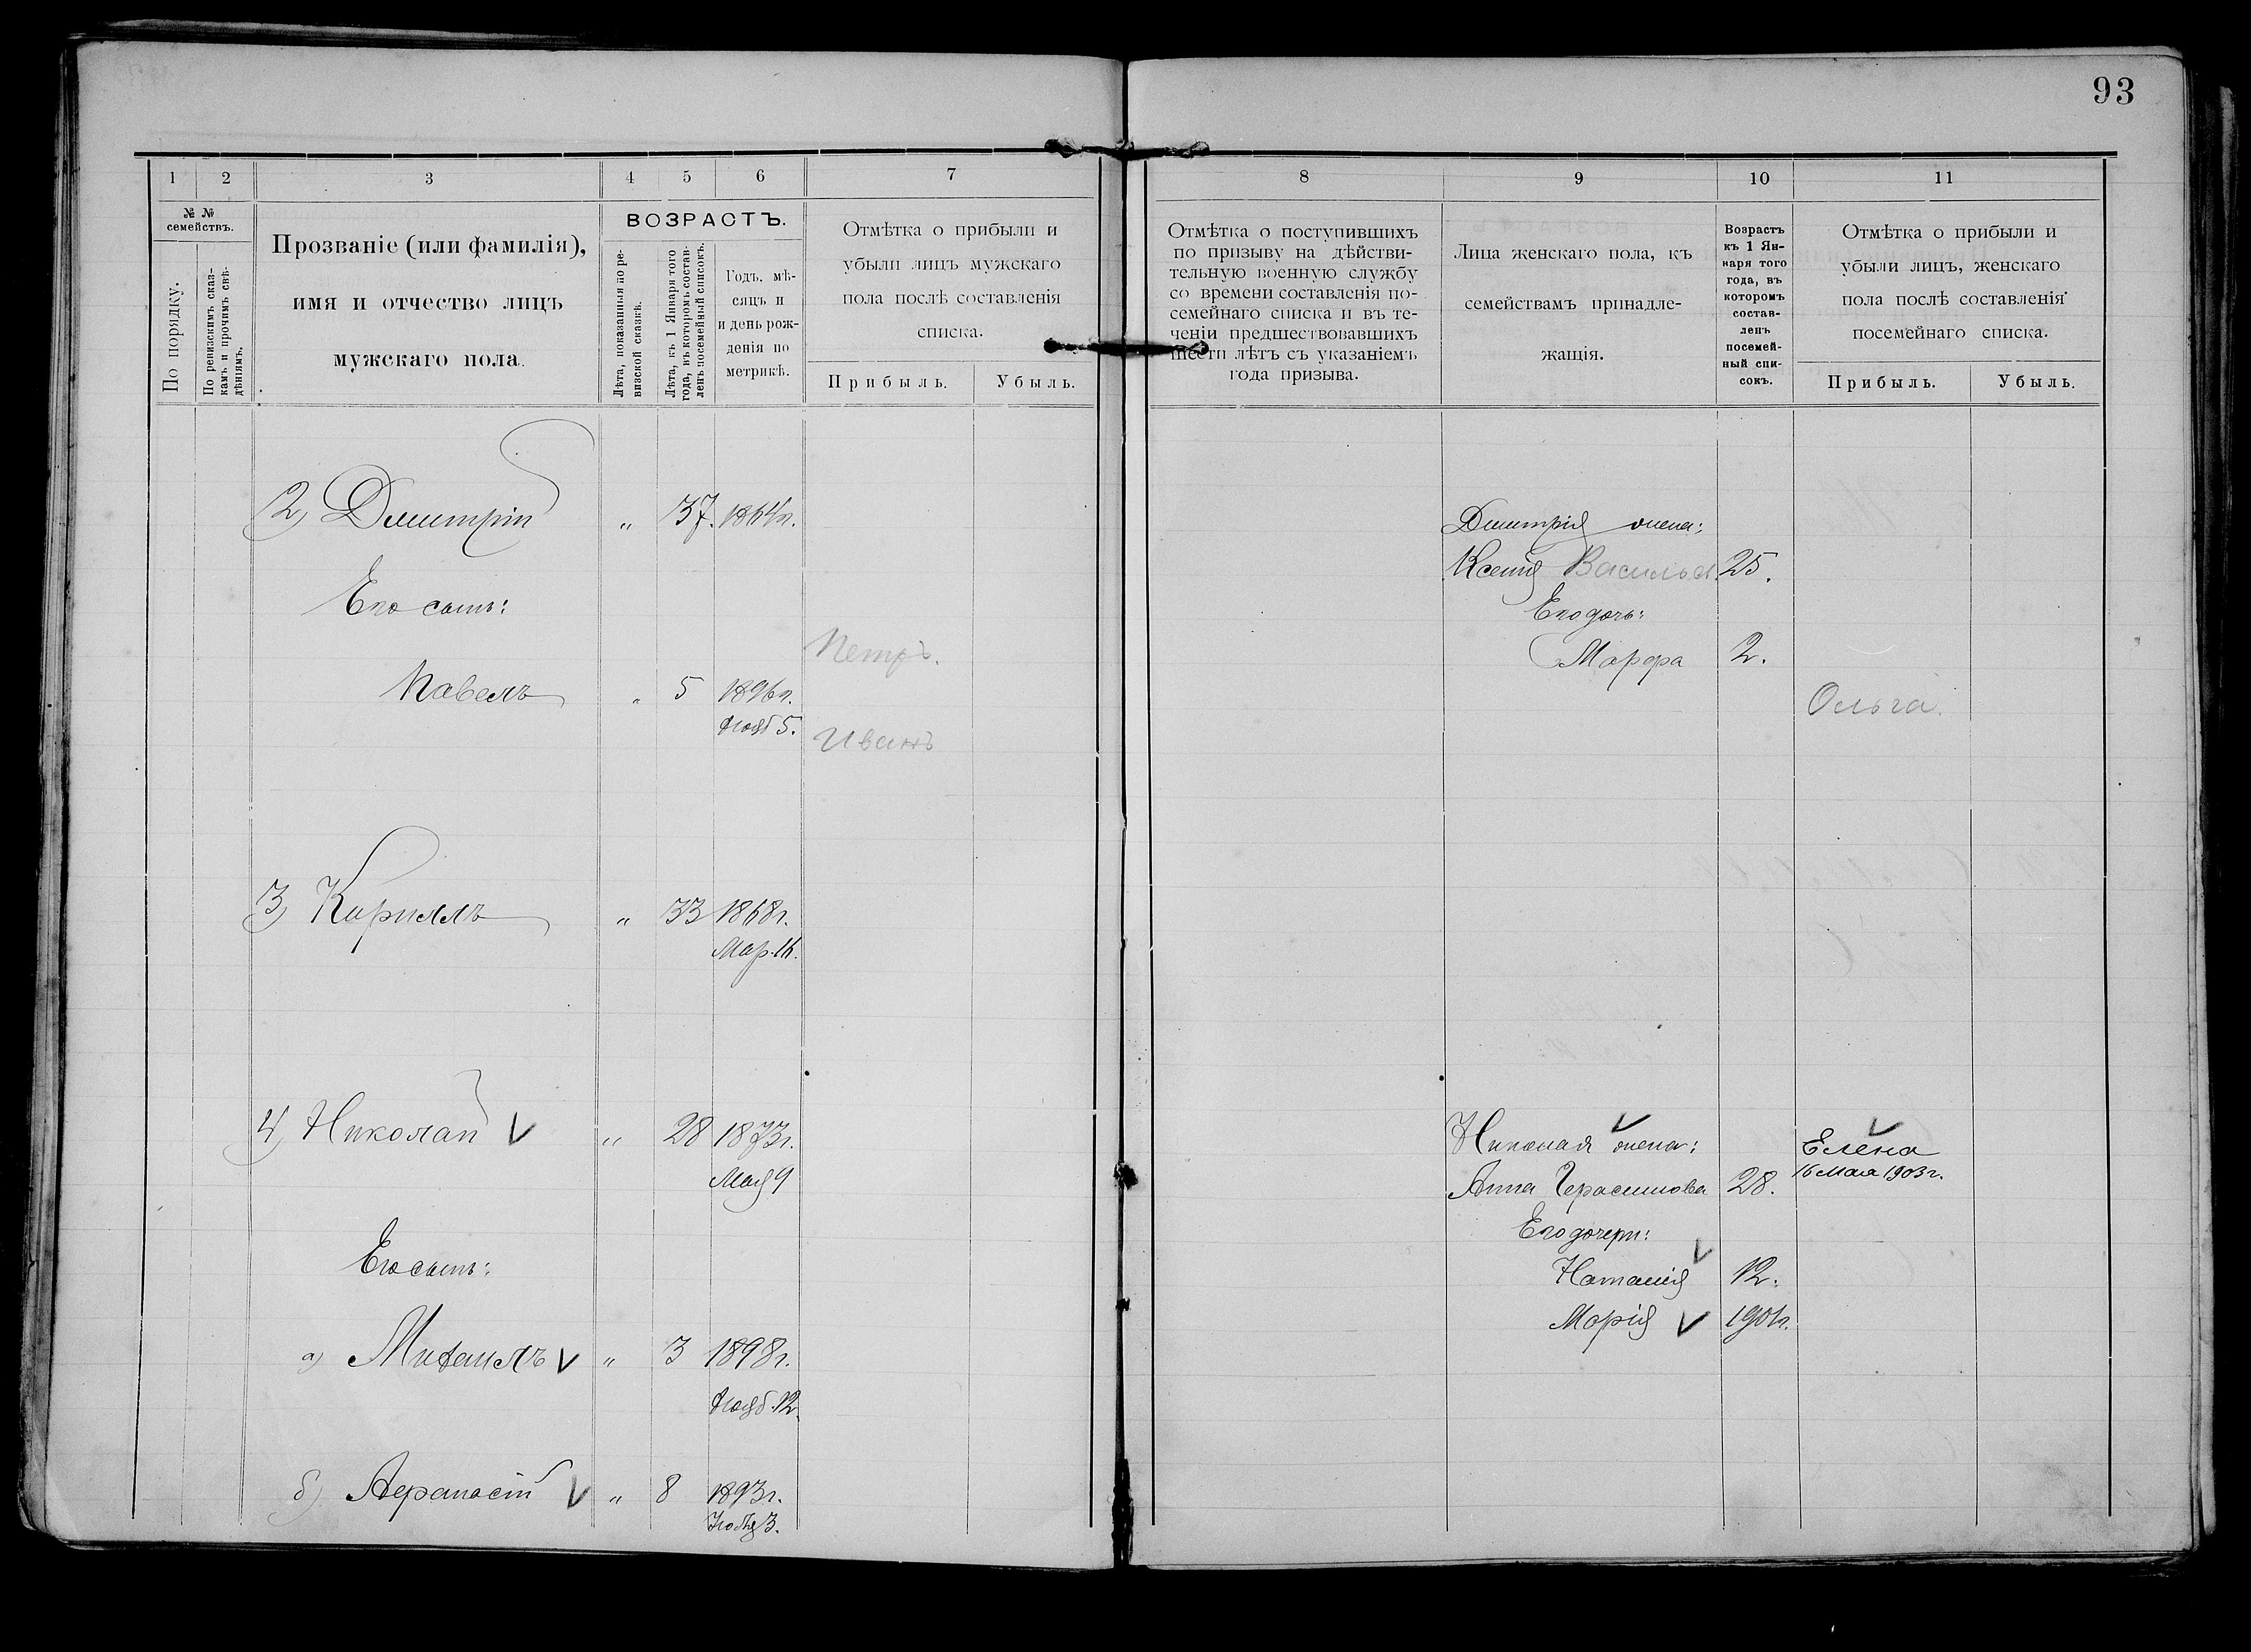 93
1 2 3 4 5 6 7
№ № семействъ.
По порядку.
По ревизскимъ сказкамъ и прочимъ свѣдѣніямъ.
Прозваніе (или фамилія),
имя и отчество лицъ
мужскаго пола.
ВОЗРАСТЪ.
Лѣта, показанныя по ревизской сказкѣ.
Лѣта, къ 1 Января того года, въ которомъ составленъ посемейный списокъ.
Годъ, мѣ-
сяцъ и
и день рож-
денія по
метрикѣ.
Отмѣтка о прибыли и
убыли лицъ мужскаго
пола послѣ составленія
списка.
Прибыль. Убыль.
2) Дмитрій " 37. 1864г.
Его сынъ:
Петръ.
Павелъ " 5 1896г.
Нояб 5.
Иванъ
3) Кириллъ " 33 1868г.
Мар. 16.
4) Николай V " 28 1873г.
Мая 9
Его сынъ:
а) Михаилъ V " 3 1898г.
Нояб. 12.
б) Аѳанасій V " 8 1893г.
8 9 10 11
Отмѣтка о поступившихъ
по призыву на дѣйстви-
тельную военную службу
со времени составленія по-
семейнаго списка и въ те-
ченіи предшествовавшихъ
шести лѣтъ съ указаніемъ
года призыва.
Лица женскаго пола, къ
семействамъ принадле-
жащія.
Возрастъ
къ 1 Ян-
варя того
года, въ
которомъ
состав-
ленъ
посемей-
ный спи-
сокъ.
Отмѣтка о прибыли и
убыли лицъ, женскаго
пола послѣ составленія
посемейнаго списка.
Прибыль. Убыль.
Дмитрія жена:
Ксенія Васильев 25.
Его дочь:
Марфа 2.
Ольга.
Николая жена: V
Елена V
16 Мая 1903г.
Анна Герасимова 28.
Его дочери:
Наталія V 12.
Марія V 1901г.